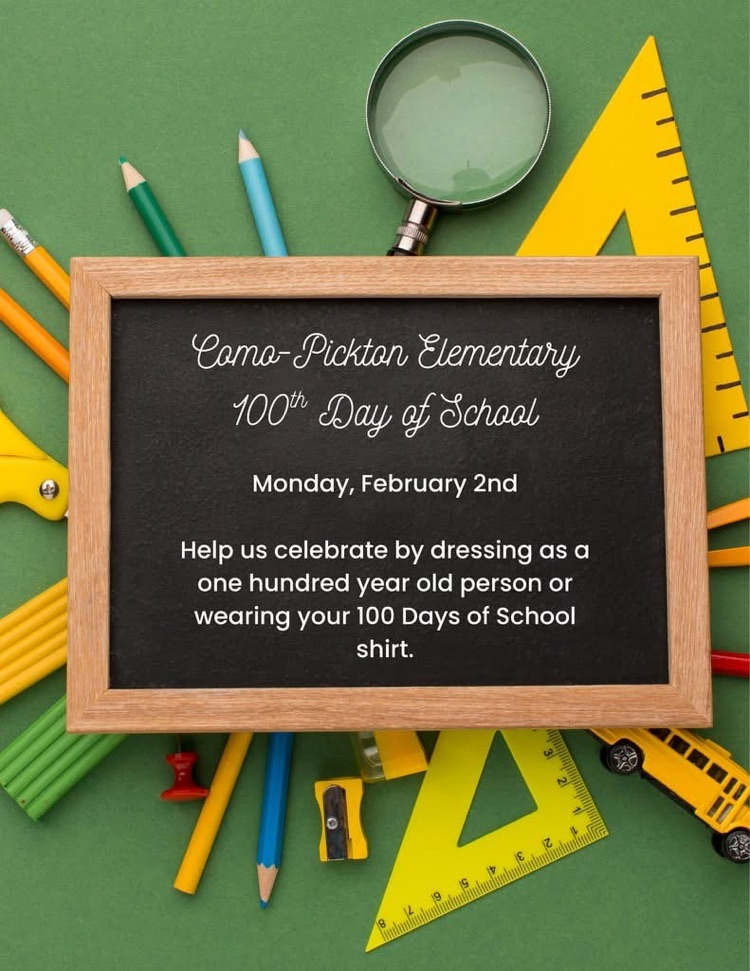 Como-Pickton Elementary
100th Day of School
Monday, February 2nd
Help us celebrate by dressing as a
one hundred year old person or
wearing your 100 Days of School
shirt.
3
2
1
1
2
3
4
5
6
7
8